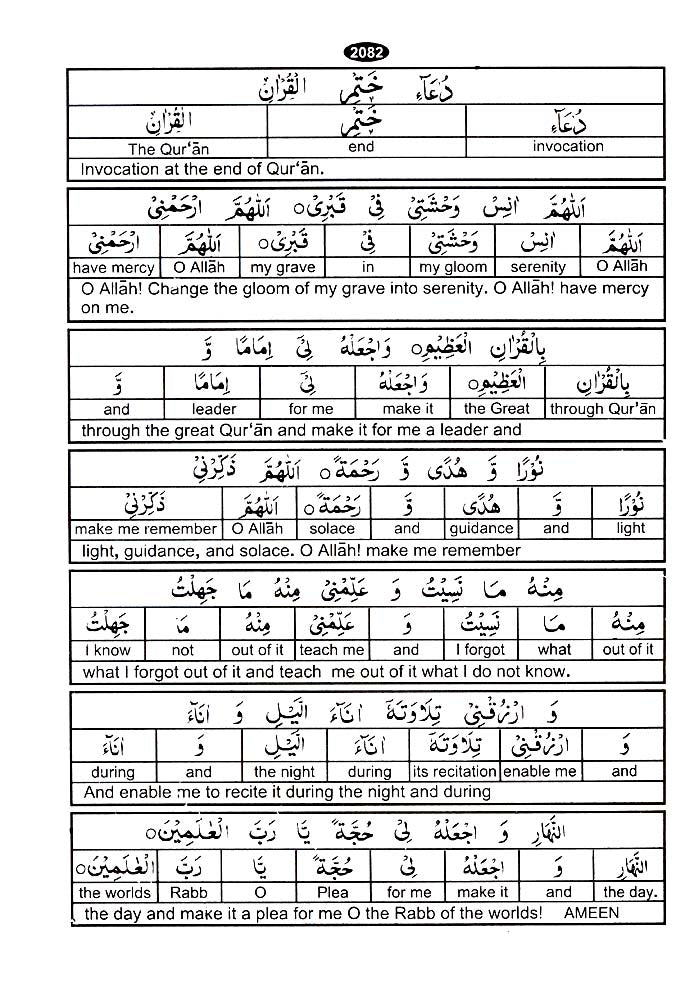 2082
دُعَآءِ خَتْمِ الْقُرْاٰنْ
دُعَآءِ خَتْمِ الْقُرْاٰنْ
invocation end The Qur‘ān
Invocation at the end of Qur‘ān.
اَللّٰهُمَّ اٰنِسْ وَحْشَتِىْ فِىْ قَبْرِىْ ○ اَللّٰهُمَّ ارْحَمْنِىْ
اَللّٰهُمَّ اٰنِسْ وَحْشَتِىْ فِىْ قَبْرِىْ ○ اَللّٰهُمَّ ارْحَمْنِىْ
have mercy O Allāh my grave in my gloom serenity O Allāh
O Allāh! Change the gloom of my grave into serenity. O Allāh! have mercy
on me.
بِالْقُرْاٰنِ الْعَظِيْمِ ○ وَاجْعَلْهُ لِىْ اِمَامًا وَّ
بِالْقُرْاٰنِ الْعَظِيْمِ ○ وَاجْعَلْهُ لِىْ اِمَامًا وَّ
and leader for me make it the Great through Qur‘ān
through the great Qur‘ān and make it for me a leader and
نُوْرًا وَّ هُدًى وَّ رَحْمَةً ○ اَللّٰهُمَّ ذَكِّرْنِىْ
نُوْرًا وَّ هُدًى وَّ رَحْمَةً ○ اَللّٰهُمَّ ذَكِّرْنِىْ
make me remember O Allāh solace and guidance and light
light, guidance, and solace. O Allāh! make me remember
مِنْهُ مَا نَسِيْتُ وَ عَلِّمْنِىْ مِنْهُ مَا جَهِلْتُ
مِنْهُ مَا نَسِيْتُ وَ عَلِّمْنِىْ مِنْهُ مَا جَهِلْتُ
I know not out of it teach me and I forgot what out of it
what I forgot out of it and teach me out of it what I do not know.
وَ ارْزُقْنِىْ تِلَاوَتَهٗ اٰنَآءَ الَّيْلِ وَ اٰنَآءَ
وَ ارْزُقْنِىْ تِلَاوَتَهٗ اٰنَآءَ الَّيْلِ وَ اٰنَآءَ
during and the night during its recitation enable me and
And enable me to recite it during the night and during
النَّهَارِ وَ اجْعَلْهُ لِىْ حُجَّةً يَّا رَبَّ الْعٰلَمِيْنَ ○
النَّهَارِ وَ اجْعَلْهُ لِىْ حُجَّةً يَّا رَبَّ الْعٰلَمِيْنَ ○
the worlds Rabb O Plea for me make it and the day.
the day and make it a plea for me O the Rabb of the worlds! AMEEN